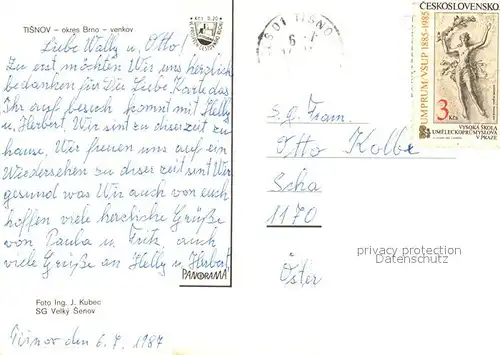 TIŠNOV – okres Brno – venkov
Kčs 0.20
Liebe Wally u, Otto!
Zu erst möchten Wir uns herzlich
bedanken für Die Liebe Karte das
Ihr auf besuch kommt mit Helly
u, Herbert, Wir sint zu diserzeit zu
hause, Wir freuen uns auf ein
Wiedersehen zu diser zeit sint Wir
gesund was Wir auch von euch
hoffen viele herzliche Grüße
von Paula u, Fritz, auch
viele Grüße an Helly u, Herbert,
PANORAMA
Foto Ing. J. Kubec
SG Velký Šenov
Tišnov den 6. 7. 1987
501 TIŠNO
ČESKOSLOVENSKO
UMPRUM/VŠUP 1885-1985
3 Kčs
VYSOKÁ ŠKOLA
UMĚLECKOPRŮMYSLOVÁ
V PRAZE
Otto Kolbe
1170
privacy protection
Datenschutz
Öster